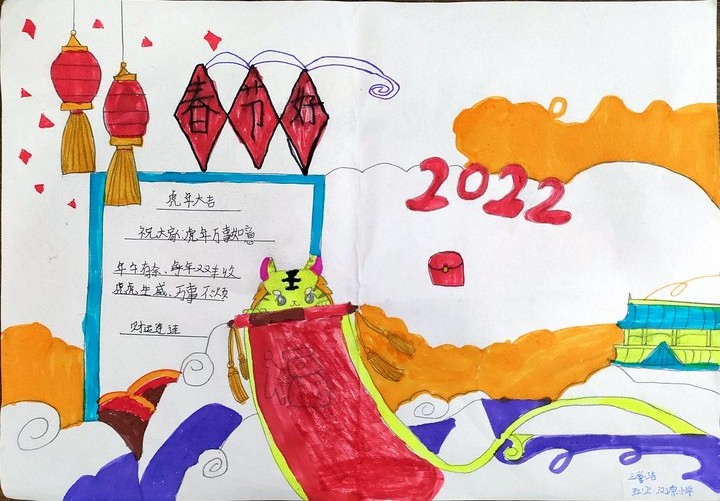 春节好
2022
虎年大吉
祝大家:虎年万事如意
年年有余、每年双丰收
虎虎生威、万事不烦
财运连连
福